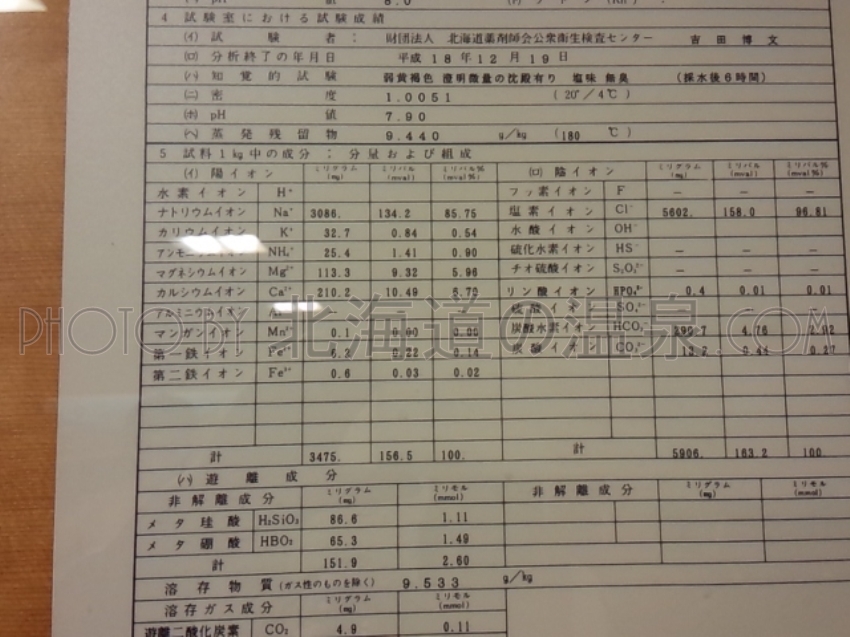 pH 値 8.0
4 試験室における試験成績
(イ) 試験者： 財団法人 北海道薬剤師会公衆衛生検査センター 吉田博文
(ロ) 分析終了の年月日 平成18年12月19日
(ハ) 知覚的試験 弱黄褐色 澄明微量の沈殿有り 塩味 無臭 (採水後6時間)
(ニ) 密度 1.0051 (20°/4℃)
(ホ) pH値 7.90
(ヘ) 蒸発残留物 9.440 g/kg (180 ℃)
5 試料1kg中の成分； 分量および組成
(イ) 陽イオン ミリグラム(mg) ミリバル(mval) ミリバル%(mval%) (ロ) 陰イオン ミリグラム(mg) ミリバル(mval) ミリバル%(mval%)
水素イオン H⁺ フッ素イオン F⁻ — — —
ナトリウムイオン Na⁺ 3086. 134.2 85.75 塩素イオン Cl⁻ 5602. 158.0 96.81
カリウムイオン K⁺ 32.7 0.84 0.54 水酸イオン OH⁻
アンモニウムイオン NH₄⁺ 25.4 1.41 0.90 硫化水素イオン HS⁻ — — —
マグネシウムイオン Mg²⁺ 113.3 9.32 5.96 チオ硫酸イオン S₂O₃²⁻ — — —
カルシウムイオン Ca²⁺ 210.2 10.49 6.70 リン酸イオン HPO₄²⁻ 0.4 0.01 0.01
アルミニウムイオン — 硫酸イオン SO₄²⁻ — — —
マンガンイオン Mn²⁺ 0.1 0.00 0.00 炭酸水素イオン HCO₃⁻ 4.76 2.92
第一鉄イオン Fe²⁺ 6.3 0.22 0.14 炭酸イオン CO₃²⁻ 13.2 0.44 0.27
第二鉄イオン Fe³⁺ 0.6 0.03 0.02
計 3475. 156.5 100. 計 5906. 163.2 100
(ハ) 遊離成分
非解離成分 ミリグラム(mg) ミリモル(mmol) 非解離成分 ミリグラム(mg) ミリモル(mmol)
メタ珪酸 H₂SiO₃ 86.6 1.11
メタ硼酸 HBO₂ 65.3 1.49
計 151.9 2.60
溶存物質(ガス性のものを除く) 9.533 g/kg
溶存ガス成分 ミリグラム(mg) ミリモル(mmol)
遊離二酸化炭素 CO₂ 4.9 0.11
PHOTO BY 北海道の温泉.COM